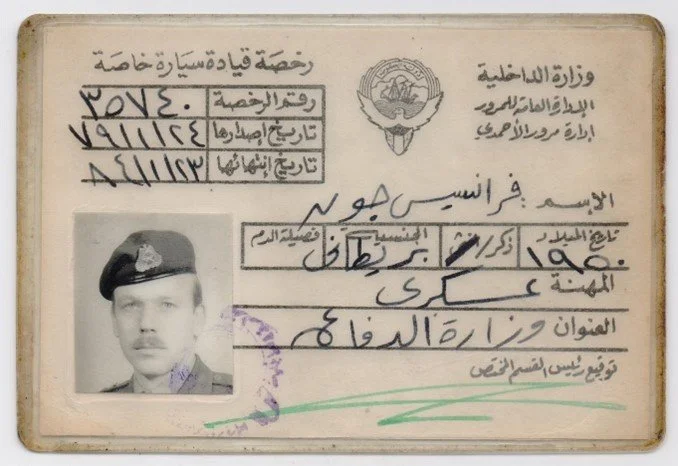 وزارة الداخلية
الإدارة العامة للمرور
إدارة مرور الأحمدي
رخصة قيادة سيارة خاصة
رقم الرخصة ٣٥٧٤٠
تاريخ إصدارها ٧٩/١١/٢٤
تاريخ إنتهائها ٨٤/١١/٢٣
الإسم: فرانسيس جون
تاريخ الميلاد ذكر/انثى الجنسية فصيلة الدم
١٩٥٠ بريطاني
المهنة عسكري
العنوان وزارة الدفاع
توقيع رئيس القسم المختص